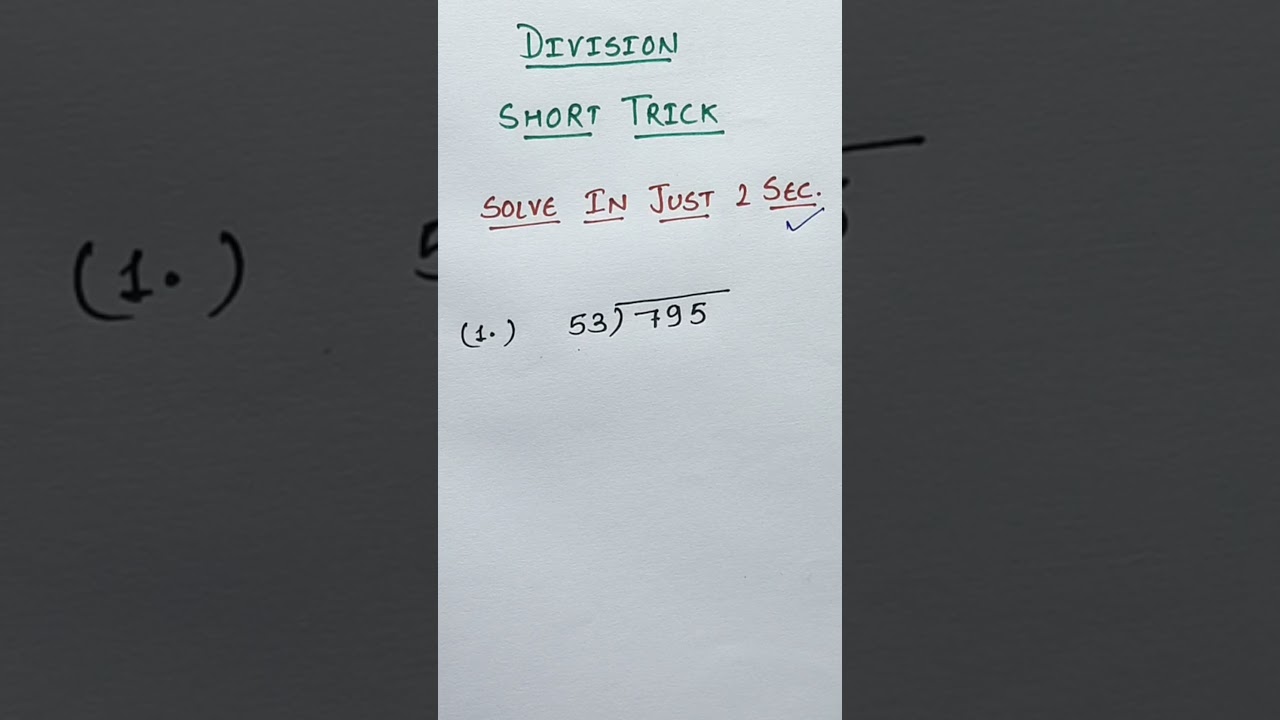 DIVISION
SHORT TRICK
SOLVE IN JUST 2 SEC.
(1.) 53)795
(1.)
5